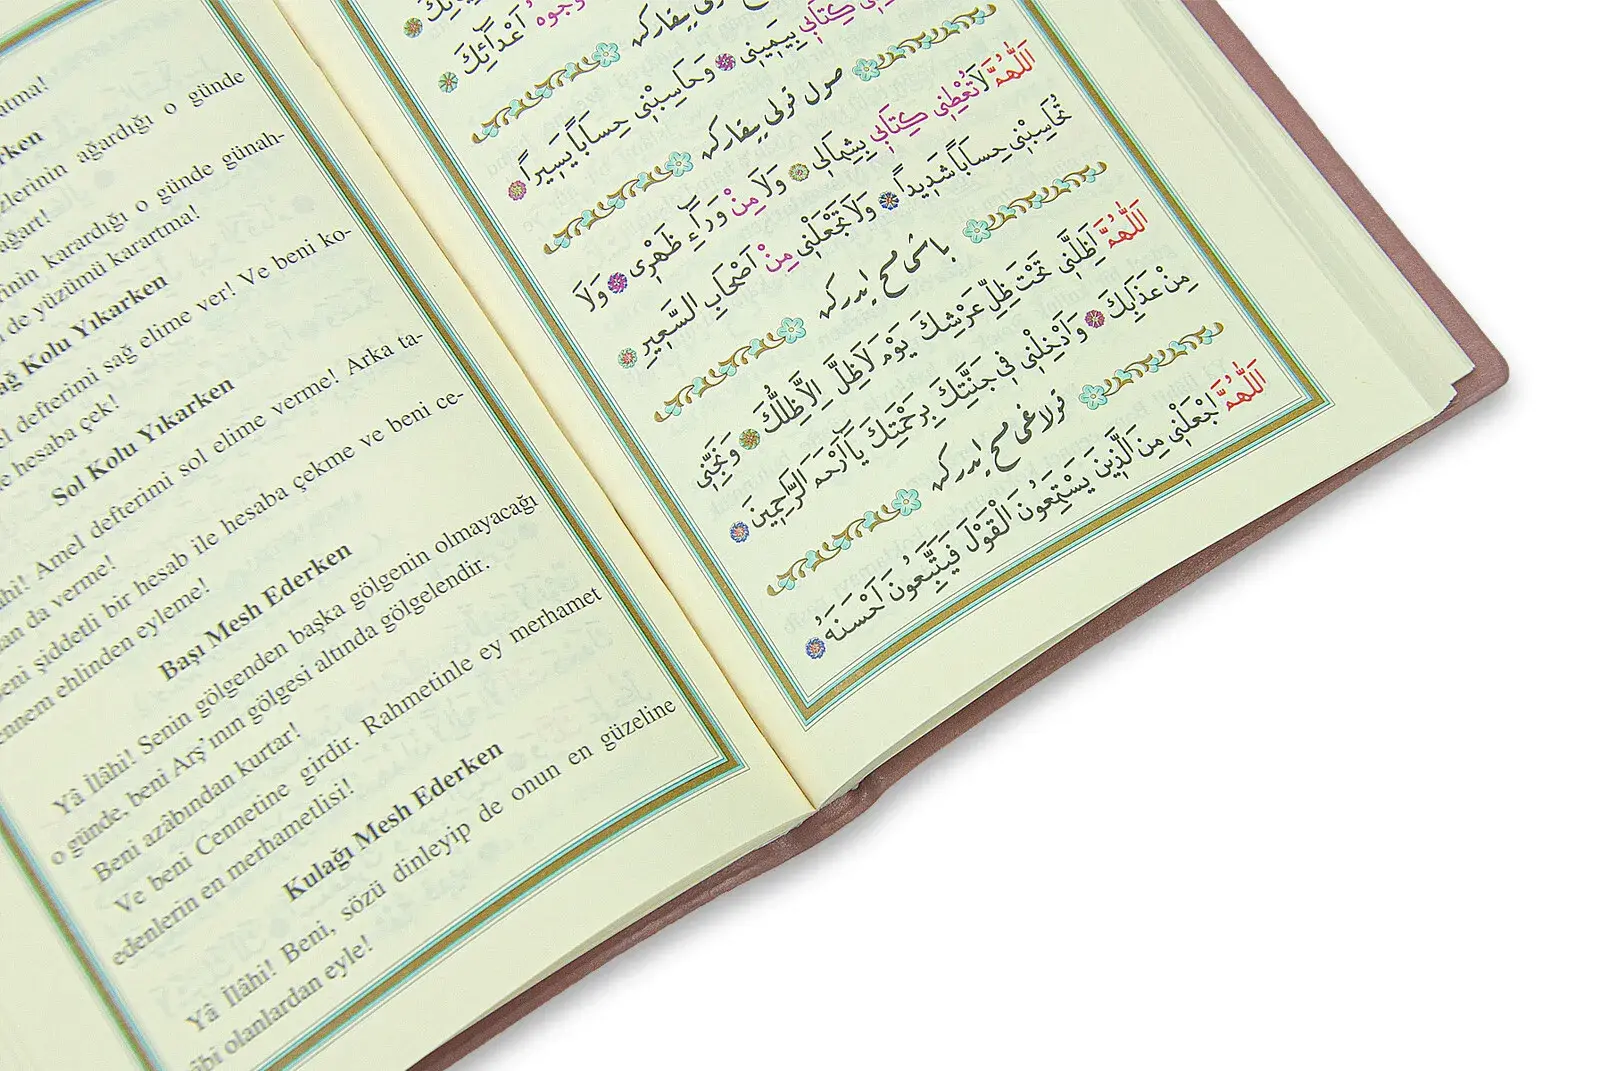 atma!
rken
zlerinin ağardığı o günde
ağart!
rinin karardığı o günde günah-
de yüzümü karartma!
ağ Kolu Yıkarken
el defterimi sağ elime ver! Ve beni ko-
le hesaba çek!
Sol Kolu Yıkarken
âhi! Amel defterimi sol elime verme! Arka ta-
dan da verme!
eni şiddetli bir hesab ile hesaba çekme ve beni ce-
ennem ehlinden eyleme!
Başı Mesh Ederken
Yâ İlâhi! Senin gölgenden başka gölgenin olmayacağı
o günde, beni Arş'ının gölgesi altında gölgelendir.
Beni azâbından kurtar!
Ve beni Cennetine girdir. Rahmetinle ey merhamet
edenlerin en merhametlisi!
Kulağı Mesh Ederken
Yâ İlâhi! Beni, sözü dinleyip de onun en güzeline
âbi olanlardan eyle!
وُجُوهُ اَعْدَٓائِكَ
يقاركه
كِتَابِي بِيَمِينِي وَحَاسِبْنِي حِسَابًا يَسِيرًا
صول قولی يقاركه
اَللّٰهُمَّ لَا تُعْطِنِي كِتَابِي بِشِمَالِي وَلَا مِنْ وَرَٓاءِ ظَهْرِي وَلَا
تُحَاسِبْنِي حِسَابًا شَدِيدًا وَلَا تَجْعَلْنِي مِنْ اَصْحَابِ السَّعِيرِ
باشی مسح ايدركه
اَللّٰهُمَّ اَظِلَّنِي تَحْتَ ظِلِّ عَرْشِكَ يَوْمَ لَا ظِلَّ اِلَّا ظِلُّكَ وَنَجِّنِي
مِنْ عَذَابِكَ وَاَدْخِلْنِي فِي جَنَّتِكَ بِرَحْمَتِكَ يَٓا اَرْحَمَ الرَّاحِمِينَ
قولاغی مسح ايدركه
اَللّٰهُمَّ اجْعَلْنِي مِنَ الَّذِينَ يَسْتَمِعُونَ الْقَوْلَ فَيَتَّبِعُونَ اَحْسَنَهُ